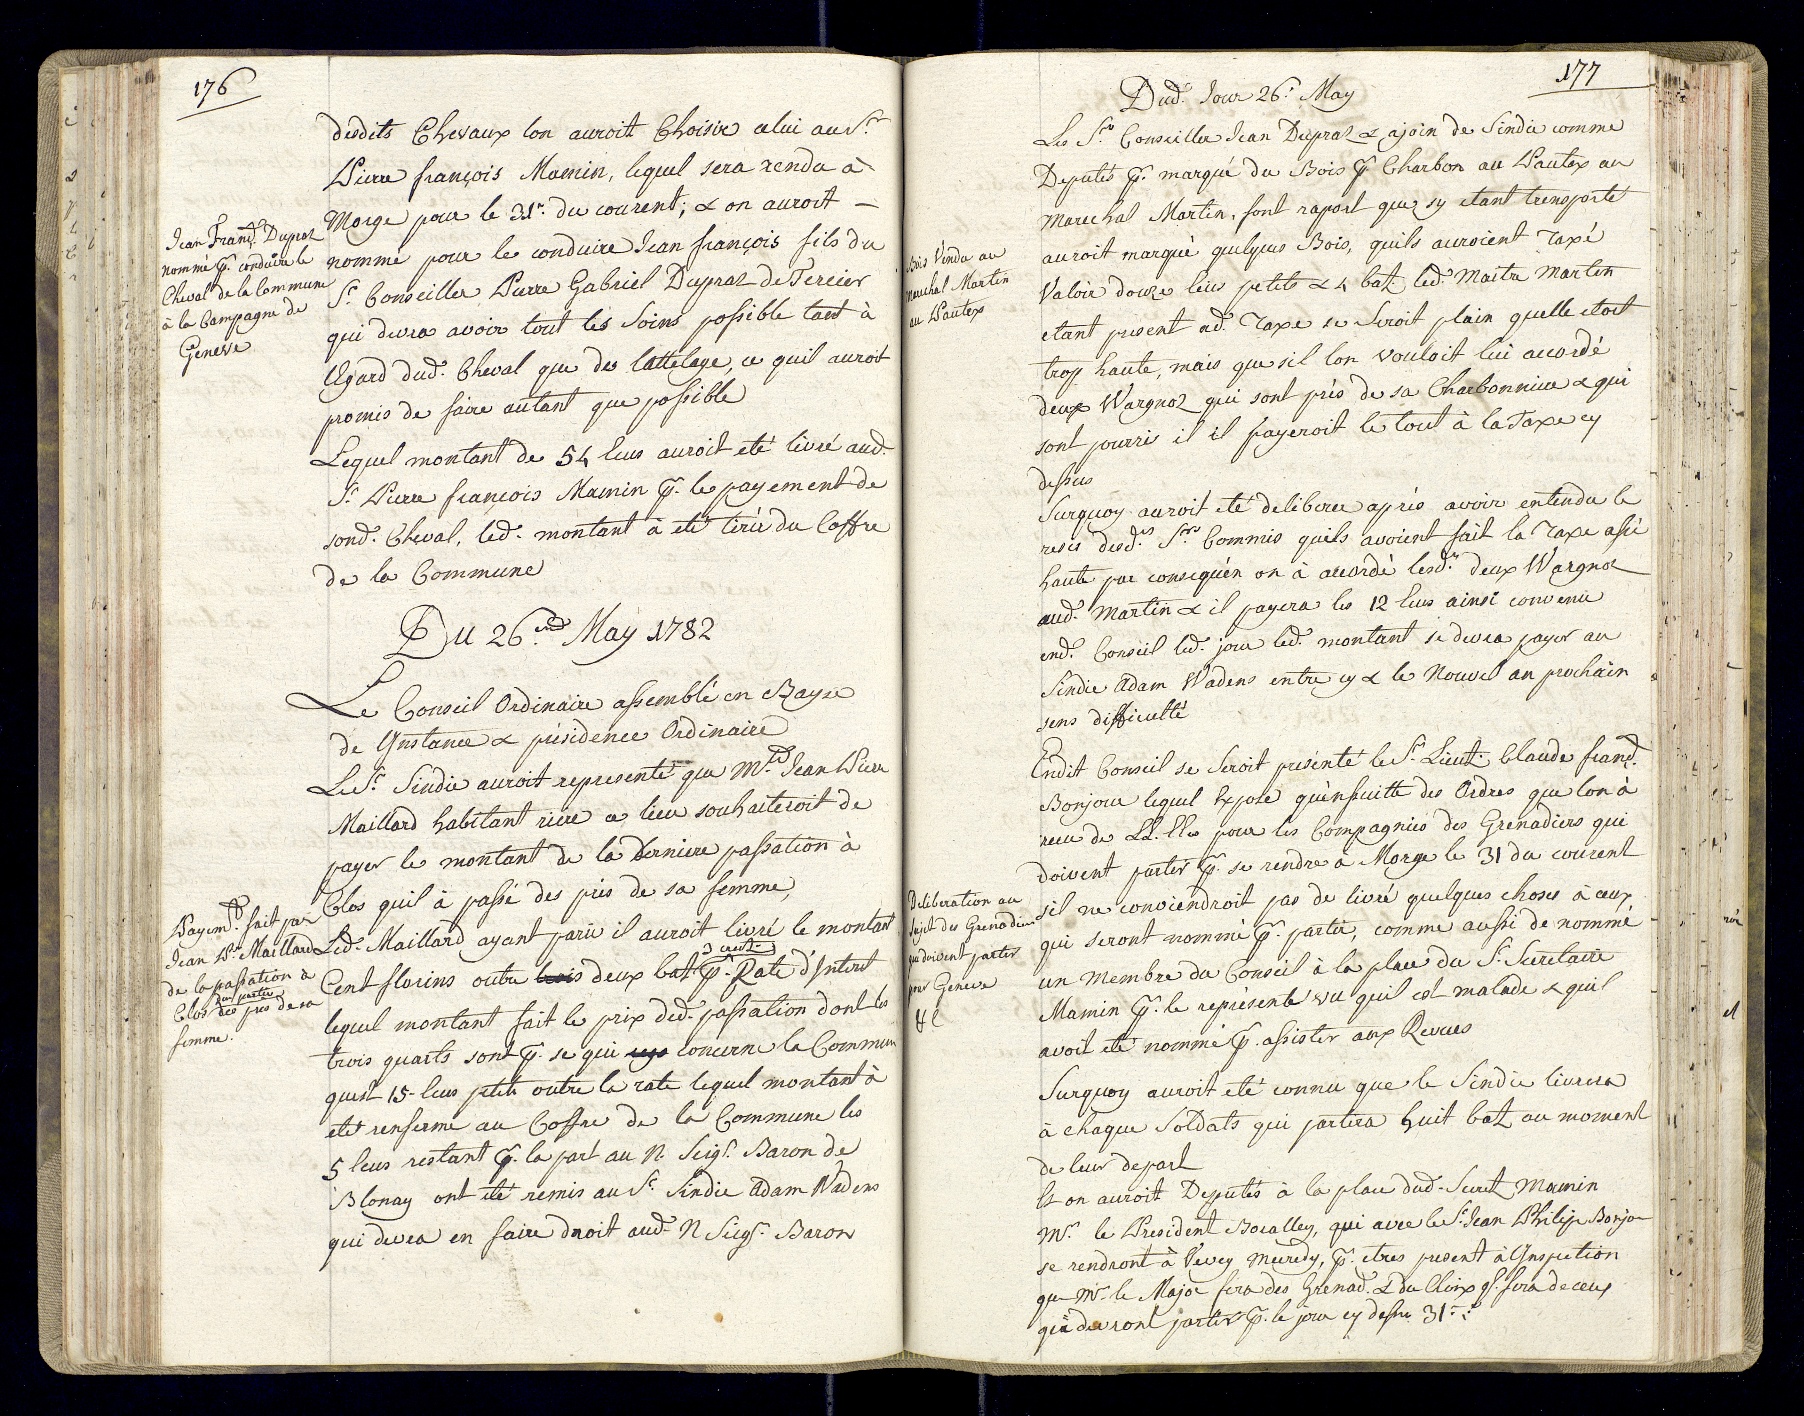 176
desdits Chevaux lon auroit Choisir celui au Sr.
Pierre françois Mamin, lequel sera rendu à
Morge pour le 31e. du courent; & on auroit —
nommé pour le conduire Jean françois fils du
Sr. Conseiller Pierre Gabriel Dupraz de Tercier
qui devra avoir tout les Soins possible tant à
lEgard dud. Cheval que des lattelage, ce quil auroit
promis de faire autant que possible
Jean Franç. Dupraz
nommé p. conduire le
Cheval de la Commune
à la Campagne de
Geneve
Lequel montant de 54 leus auroit eté livré aud.
Sr. Pierre françois Mamin p. le payement de
sond. Cheval, led. montant à eté tirée du Coffre
de la Commune
Du 26me May 1782
Le Conseil Ordinaire assemblé en Bayse
de Ynstance & présidence Ordinaire
Le Sr. Sindic auroit representé que Mre. Jean Pierre
Maillard habitant riere ce lieu souhaiteroit de
payer le montant de la derniere passation à
Clos quil à passé des prés de sa femme,
Led. Maillard ayant paru il auroit livré le montant
3 cruz.
Cent florins outre trois deux bat. p. Rate d'Interet
lequel montant fait le prix ded. passation dont les
trois quarts sont p. se qui concerne la Commune
quest 15 leus petits outre la rate lequel montant à
eté renfermé au Coffre de la Commune les
5 leus restant p. la part au N. Seigr. Baron de
Blonay ont été remis au Sr. Sindic Adam Wadens
qui devra en faire droit aud. N Seigr. Baron
Payemt. fait par
Jean Pre. Maillard
de la passation à
dun partie
Clos des prés de sa
femme.
177
Dud. Jour 26e. May
Les Srs. Conseiller Jean Dupraz & ajoin de Sindic comme
Deputés p. marqué du Bois p. Charbon au Pautex au
Marechal Martin, font raport que sy etant trensporté
auroit marqué quelques Bois, quils auroient Taxé
Valoir douze leus petits & 4 bat. led. Maitre Martin
etant present ad. Taxe se Seroit plain quelle etoit
trop haute, mais que sil lon vouloit lui accordé
deux Wargnoz qui sont prés de sa Charbonniere & qui
sont pourri il il payeroit le tout à la Taxe cy
dessus
Bois Vendu au
Marechal Martin
au Pautex
Surquoy auroit eté deliberee aprés avoir entendu le
resis desds. Srs. Commis quils avoient fait la Taxe assé
haute par consequén on à accordé lesd. deux Wargnoz
aud. Martin & il payera les 12 leus ainsi convenu
end. Conseil led. jour led. montant se devra payer au
Sindic Adam Wadens entre cy & le Nouvel an prochain
sens difficulté
Endit Conseil se Seroit présenté le Sr. Lieut. Claude franç.
Bonjour lequel Expose qu'ensuitte des Ordres que lon à
receu de LL. EEes pour les Compagnies des Grenadiers qui
doivent parter p. se rendre à Morge le 31 du courent
sil ne conviendroit pas de livré quelques choses à ceux
qui seront nommé p. partir, comme aussi de nommé
un Membre du Conseil à la place du Sr. Secretaire
Mamin p. le représenté vu quil est malade & quil
avoit eté nommé p. assister aux Revues
Deliberation au
Sujet des Grenadiers
qui doivent parter
pour Geneve
&c
Surquoy auroit eté connu que le Sindic livrera
à chaque Soldats qui partira huit bat. au moment
de leur depart
Et on auroit Deputés à la place dud. Secret. Mamin
Mr. le President Bocalley, qui avec le Sr. Jean Philip Bonjour
se rendront à Vevey p. etres present à lInspection
que Mr. le Major fera des Grenad. & du Choix q. fera de ceux
qui devront partir p. le jour cy dessus 31e.